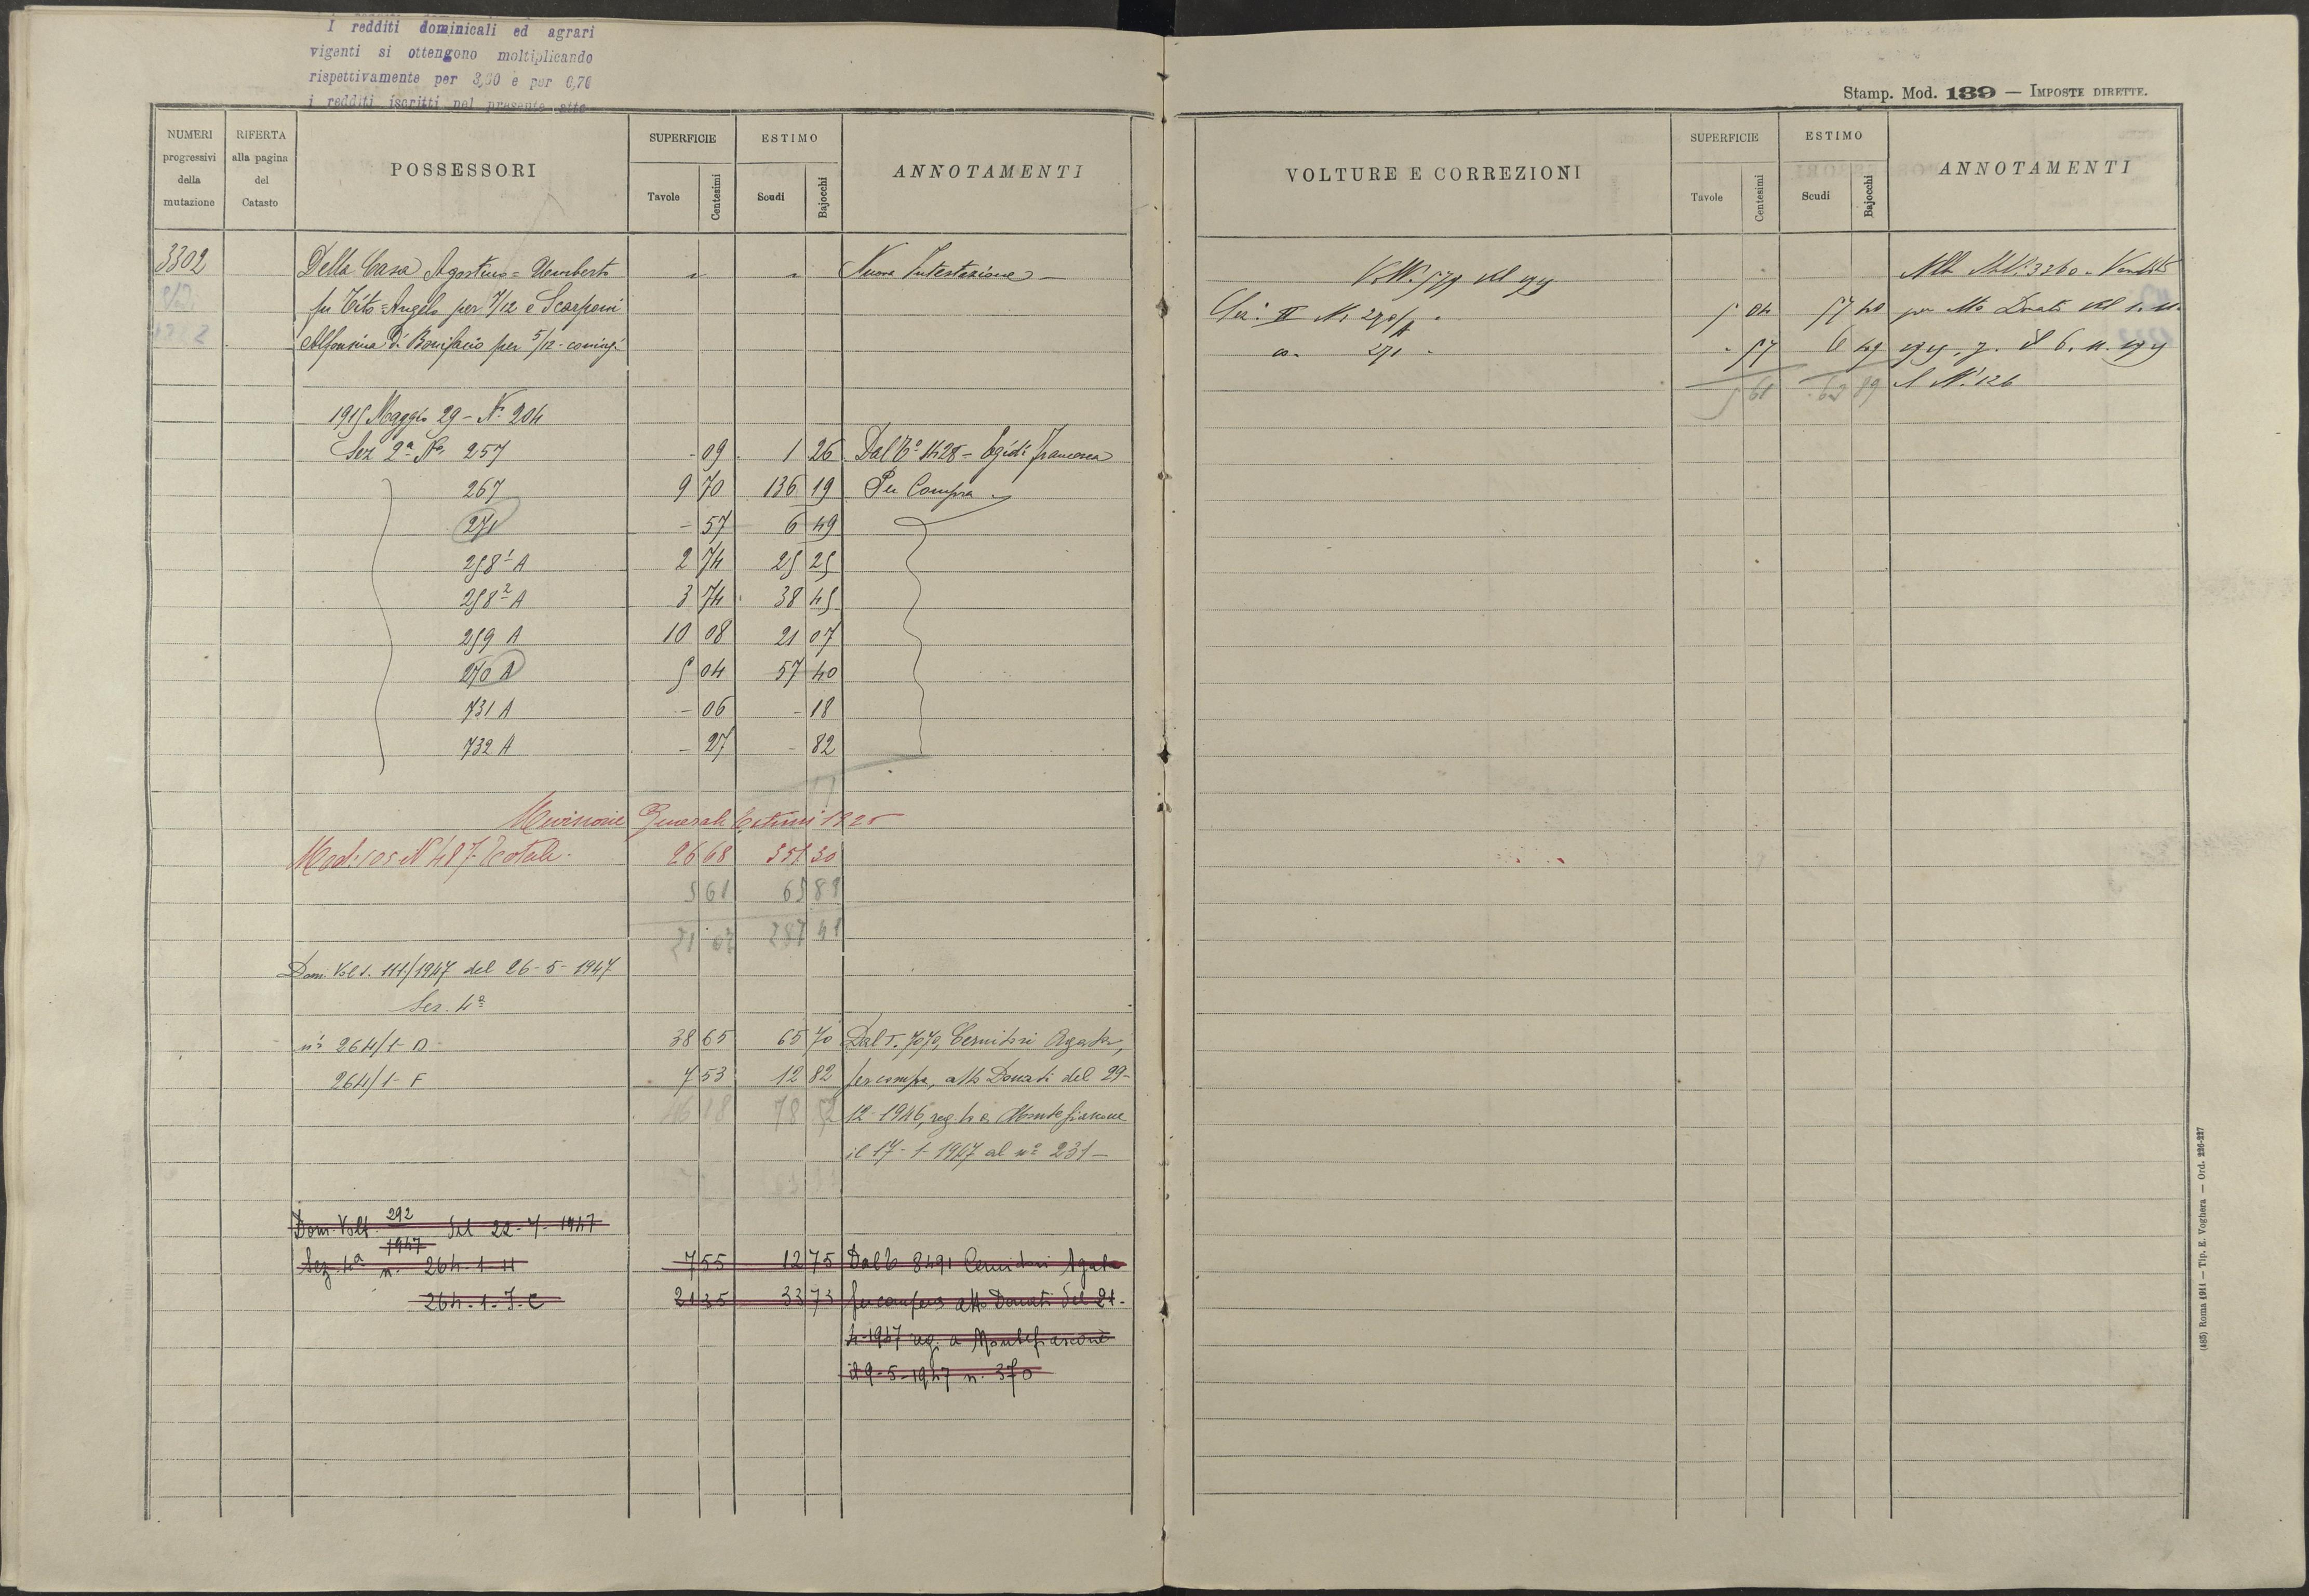 I redditi dominicali ed agrari
vigenti si ottengono moltiplicando
rispettivamente per 3,60 e per 0,70
i redditi iscritti nel presente atto
NUMERI progressivi della mutazione
RIFERTA alla pagina del Catasto
POSSESSORI
SUPERFICIE
Tavole Centesimi
ESTIMO
Scudi Bajocchi
ANNOTAMENTI
3302 Della Casa Agostino = Umberto " " Nuova Intestazione
fu Tito = Angelo per 7/12 e Scarponi
Alfonsina di Bonifacio per 5/12 - coniugi
1915 Maggio 29 - N. 204
Sez 2ª N. 257 - 09 1 26 Dal T° 1428 - Egidi Francesca
267 9 70 136 19 Per Compra
271 - 57 6 49
258 1 A 2 74 25 25
258 2 A 3 74 38 45
259 A 10 08 21 07
270 A 5 04 57 40
731 A - 06 - 18
732 A - 27 - 82
Revisione Generale Estimi 1925
Mod. 105 N 487. Totale. 26 68 351 30
5 61 63 89
21 07 287 41
Dom. Volt. 111/1947 del 26-5-1947
Sez. 4ª
n° 264/1-D 38 65 65 70 Dal T. 7070, Cernitori Agata,
264/1-F 7 53 12 82 per compra, atto Donati del 29-
46 18 78 52 12-1946, reg.to a Montefiascone
il 17-1-1947 al n° 231-
Dom. Volt. 292/1947 del 22-7-1947
Sez. 4ª n. 264-1-H 7 55 12 75 Dal T. 8491 Cernitori Agata
264-1-I-C 21 35 33 73 per compera atto Donati del 21-
4-1947 reg. a Montefiascone
il 9-5-1947 n. 370
Stamp. Mod. 139 — IMPOSTE DIRETTE.
VOLTURE E CORREZIONI
SUPERFICIE
Tavole Centesimi
ESTIMO
Scudi Bajocchi
ANNOTAMENTI
Sez: II N. 270/A 5 04 57 40 per atto Donati del
271 - 57 6 49
5 61 63 89 N. 126
(485) Roma 1914 — Tip. E. Voghera — Ord. 226-227